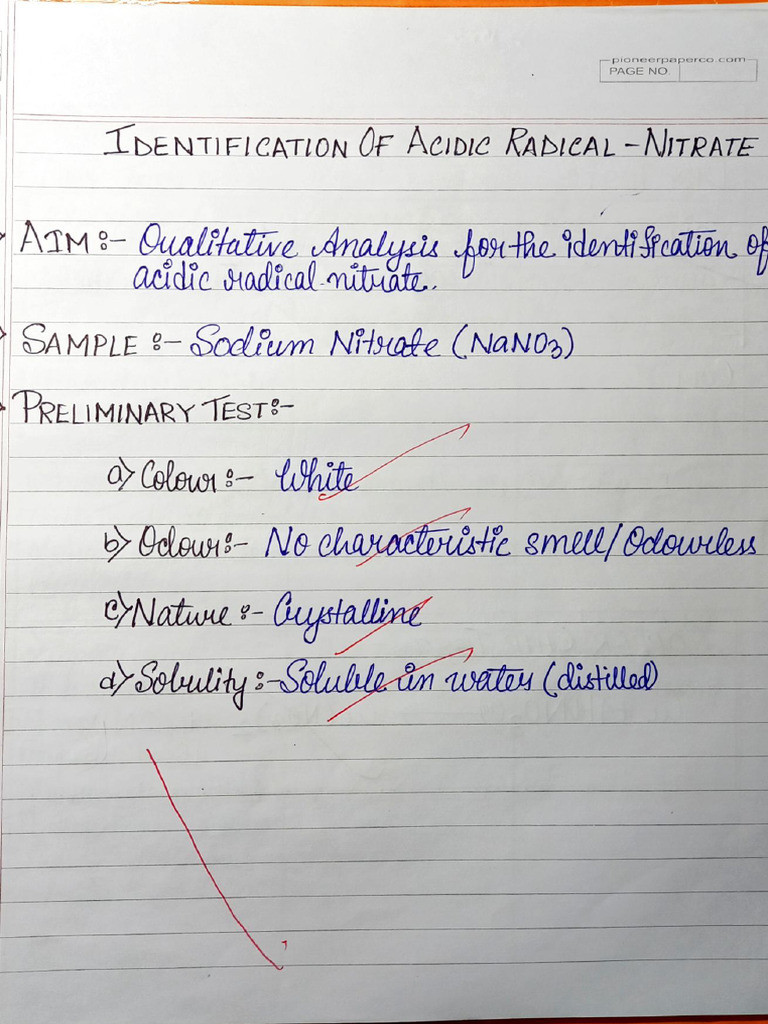 pioneerpaperco.com
PAGE NO.
IDENTIFICATION OF ACIDIC RADICAL - NITRATE
AIM :- Qualitative Analysis for the identification of
acidic radical nitrate.
SAMPLE :- Sodium Nitrate (NaNO3)
PRELIMINARY TEST:-
a) Colour :- White
b) Odour:- No characteristic smell/Odourless
c) Nature :- Crystalline
d) Solubility :- Soluble in water (distilled)